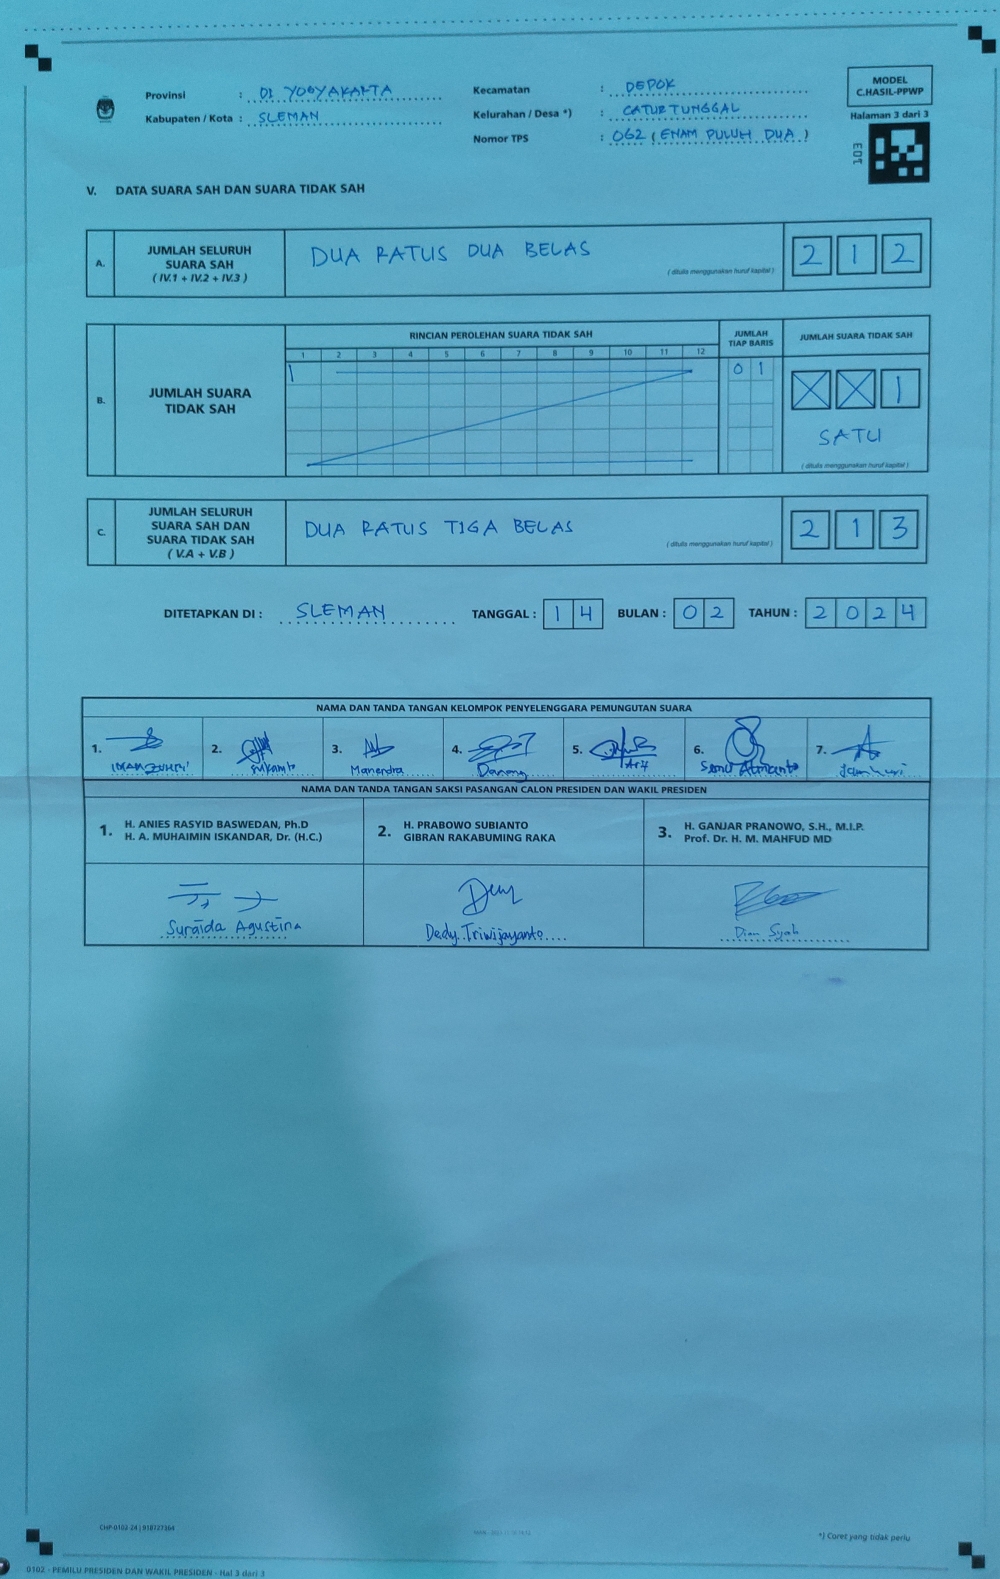 Provinsi : DI YOGYAKARTA
Kabupaten / Kota : SLEMAN
Kecamatan : DEPOK
Kelurahan / Desa *) : CATURTUNGGAL
Nomor TPS : 062 (ENAM PULUH DUA)
MODEL
C.HASIL-PPWP
Halaman 3 dari 3
103
V. DATA SUARA SAH DAN SUARA TIDAK SAH
A. JUMLAH SELURUH SUARA SAH ( IV.1 + IV.2 + IV.3 )
DUA RATUS DUA BELAS
( ditulis menggunakan huruf kapital )
2 1 2
B. JUMLAH SUARA TIDAK SAH
RINCIAN PEROLEHAN SUARA TIDAK SAH
1 2 3 4 5 6 7 8 9 10 11 12
JUMLAH TIAP BARIS
0 1
JUMLAH SUARA TIDAK SAH
X X 1
SATU
( ditulis menggunakan huruf kapital )
C. JUMLAH SELURUH SUARA SAH DAN SUARA TIDAK SAH ( V.A + V.B )
DUA RATUS TIGA BELAS
( ditulis menggunakan huruf kapital )
2 1 3
DITETAPKAN DI : SLEMAN TANGGAL : 14 BULAN : 02 TAHUN : 2024
NAMA DAN TANDA TANGAN KELOMPOK PENYELENGGARA PEMUNGUTAN SUARA
1. 2. 3. 4. 5. 6. 7.
Sukamto Mahendra Danang
NAMA DAN TANDA TANGAN SAKSI PASANGAN CALON PRESIDEN DAN WAKIL PRESIDEN
1. H. ANIES RASYID BASWEDAN, Ph.D
H. A. MUHAIMIN ISKANDAR, Dr. (H.C.)
2. H. PRABOWO SUBIANTO
GIBRAN RAKABUMING RAKA
3. H. GANJAR PRANOWO, S.H., M.I.P.
Prof. Dr. H. M. MAHFUD MD
Suraida Agustina
Dedy Triwijayanto
Dian
CHP-0102-24 | 918727364
*) Coret yang tidak perlu
0102 - PEMILU PRESIDEN DAN WAKIL PRESIDEN - Hal 3 dari 3